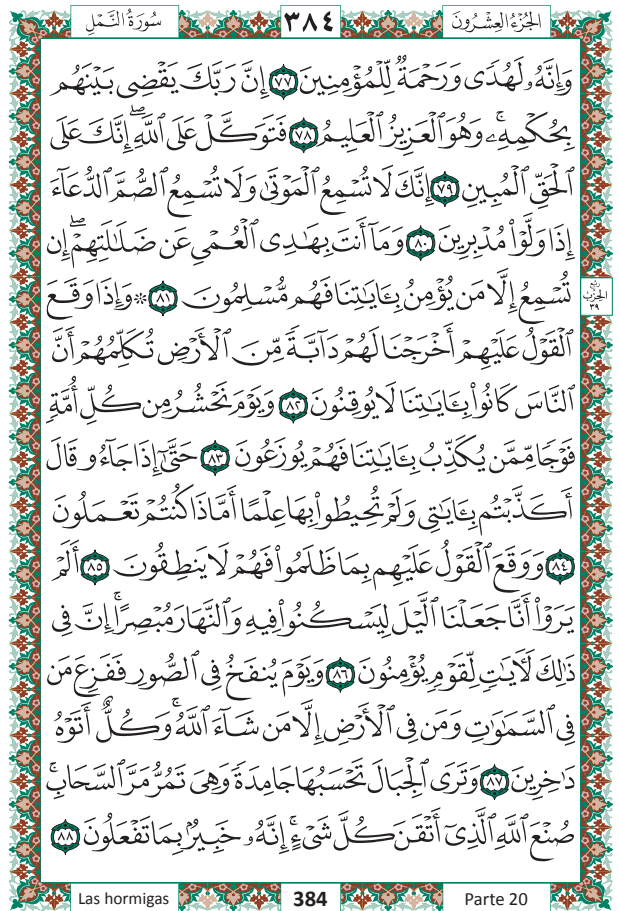 الجُزْءُ العِشْرُونَ ٣٨٤ سُورَةُ النَّمْلِ
وَإِنَّهُۥ لَهُدًى وَرَحْمَةٌ لِّلْمُؤْمِنِينَ ٧٧ إِنَّ رَبَّكَ يَقْضِى بَيْنَهُم
بِحُكْمِهِۦۚ وَهُوَ ٱلْعَزِيزُ ٱلْعَلِيمُ ٧٨ فَتَوَكَّلْ عَلَى ٱللَّهِۖ إِنَّكَ عَلَى
ٱلْحَقِّ ٱلْمُبِينِ ٧٩ إِنَّكَ لَا تُسْمِعُ ٱلْمَوْتَىٰ وَلَا تُسْمِعُ ٱلصُّمَّ ٱلدُّعَآءَ
إِذَا وَلَّوْا۟ مُدْبِرِينَ ٨٠ وَمَآ أَنتَ بِهَـٰدِى ٱلْعُمْىِ عَن ضَلَـٰلَتِهِمْۖ إِن
تُسْمِعُ إِلَّا مَن يُؤْمِنُ بِـَٔايَـٰتِنَا فَهُم مُّسْلِمُونَ ٨١ ۞ وَإِذَا وَقَعَ
ربع الحزب ٣٩
ٱلْقَوْلُ عَلَيْهِمْ أَخْرَجْنَا لَهُمْ دَآبَّةً مِّنَ ٱلْأَرْضِ تُكَلِّمُهُمْ أَنَّ
ٱلنَّاسَ كَانُوا۟ بِـَٔايَـٰتِنَا لَا يُوقِنُونَ ٨٢ وَيَوْمَ نَحْشُرُ مِن كُلِّ أُمَّةٍ
فَوْجًا مِّمَّن يُكَذِّبُ بِـَٔايَـٰتِنَا فَهُمْ يُوزَعُونَ ٨٣ حَتَّىٰٓ إِذَا جَآءُو قَالَ
أَكَذَّبْتُم بِـَٔايَـٰتِى وَلَمْ تُحِيطُوا۟ بِهَا عِلْمًا أَمَّاذَا كُنتُمْ تَعْمَلُونَ
٨٤ وَوَقَعَ ٱلْقَوْلُ عَلَيْهِم بِمَا ظَلَمُوا۟ فَهُمْ لَا يَنطِقُونَ ٨٥ أَلَمْ
يَرَوْا۟ أَنَّا جَعَلْنَا ٱلَّيْلَ لِيَسْكُنُوا۟ فِيهِ وَٱلنَّهَارَ مُبْصِرًاۚ إِنَّ فِى
ذَٰلِكَ لَـَٔايَـٰتٍ لِّقَوْمٍ يُؤْمِنُونَ ٨٦ وَيَوْمَ يُنفَخُ فِى ٱلصُّورِ فَفَزِعَ مَن
فِى ٱلسَّمَـٰوَٰتِ وَمَن فِى ٱلْأَرْضِ إِلَّا مَن شَآءَ ٱللَّهُۚ وَكُلٌّ أَتَوْهُ
دَٰخِرِينَ ٨٧ وَتَرَى ٱلْجِبَالَ تَحْسَبُهَا جَامِدَةً وَهِىَ تَمُرُّ مَرَّ ٱلسَّحَابِۚ
صُنْعَ ٱللَّهِ ٱلَّذِىٓ أَتْقَنَ كُلَّ شَىْءٍۚ إِنَّهُۥ خَبِيرٌۢ بِمَا تَفْعَلُونَ ٨٨
Las hormigas 384 Parte 20